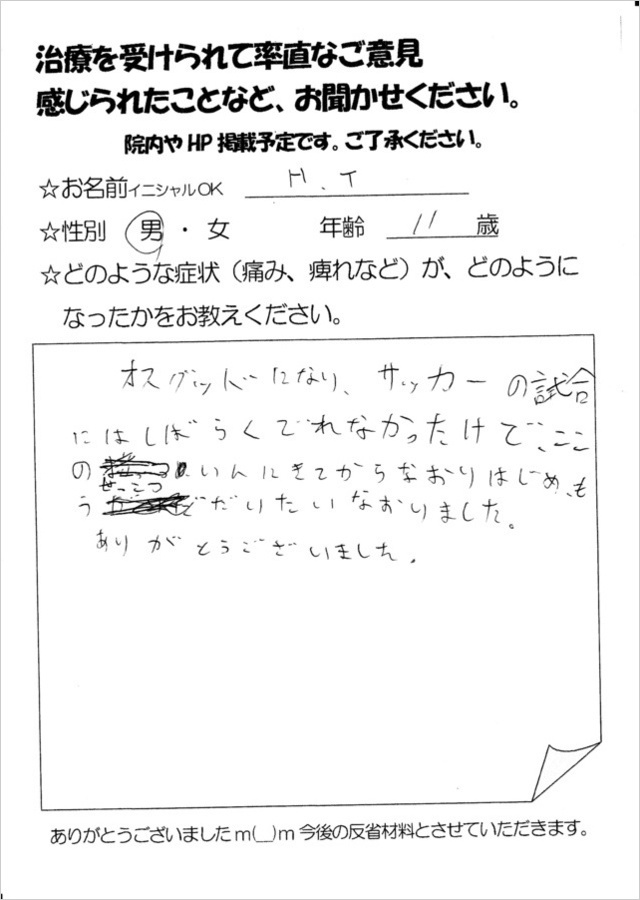 治療を受けられて率直なご意見
感じられたことなど、お聞かせください。
院内やHP掲載予定です。ご了承ください。
☆お名前イニシャルOK H.T
☆性別 男・女 年齢 11 歳
☆どのような症状（痛み、痺れなど）が、どのように
なったかをお教えください。
オスグッドになり、サッカーの試合
にはしばらくでれなかったけど、ここ
の せっこついんにきてからなおりはじめ、も
う だいたいなおりました。
ありがとうございました。
ありがとうございましたm(__)m今後の反省材料とさせていただきます。